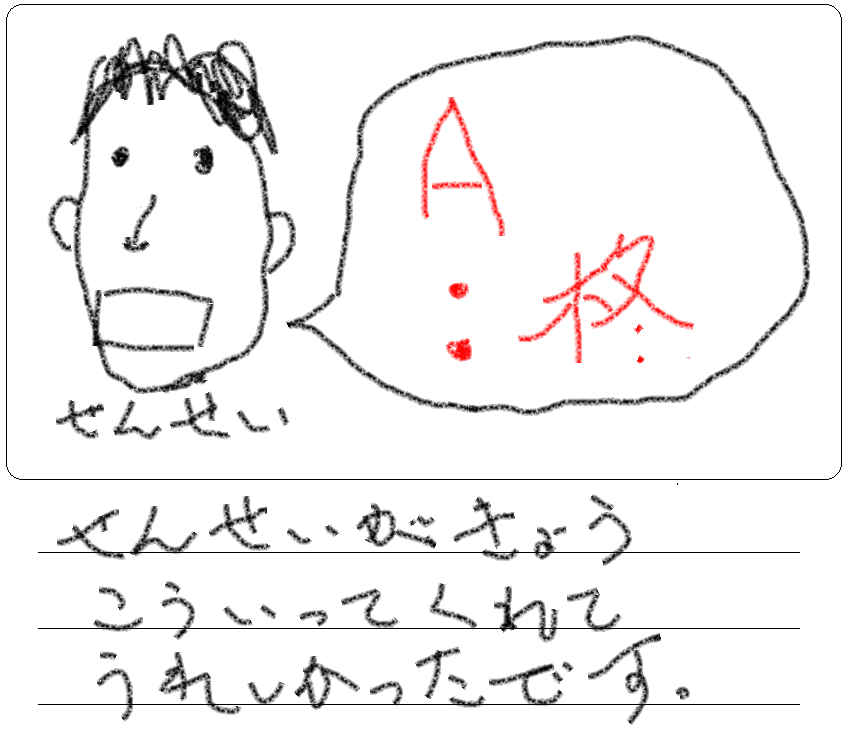 せんせい
せんせいがきょう
こういってくれて
うれしかったです。